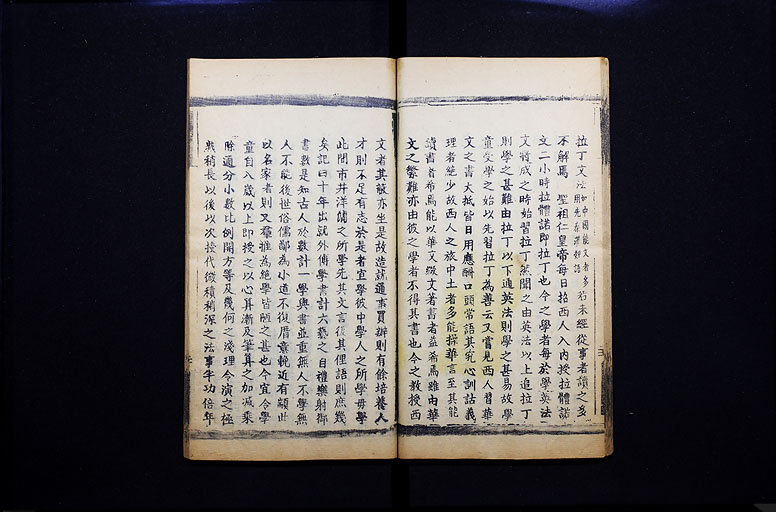 拉丁文法如中國能文者多用先秦漢魏語若未經從事者讀之多
不解焉 聖祖仁皇帝每日招西人入內授拉體諾
文二小時拉體諾即拉丁也今之學者每於學英法
文將成之時始習拉丁然聞之由英法以上追拉丁
則學之甚難由拉丁以下通英法則學之甚易故學
童受學之始以先習拉丁為善云又嘗見西人習華
文之書大抵皆日用應酬口頭常語其究心訓詁義
理者絕少故西人之旅中土者多能操華言至其能
讀書者希焉能以華文綴文著書者益希焉雖由華
文之繁難亦由彼之學者不得其書也今之教授西
文者其蔽亦坐是故造就通事買辦則有餘培養人
才則不足有志於是者宜學彼中學人之所學毋學
此間市井洋傭之所學先其文言後其俚語則庶幾
矣記曰十年出就外傅學書計六藝之目禮樂射御
書數是知古人於數計一學與書並重無人不學無
人不能後世俗儒鄙為小道不復厝意輓近有顓此
以名家者則又羣推為絕學皆陋之甚也今宜令學
童自八歲以上即授之以心算漸及筆算之加減乘
除通分小數比例開方等及幾何之淺理令演之極
熟稍長以後以次授代微積稍深之法事半功倍年